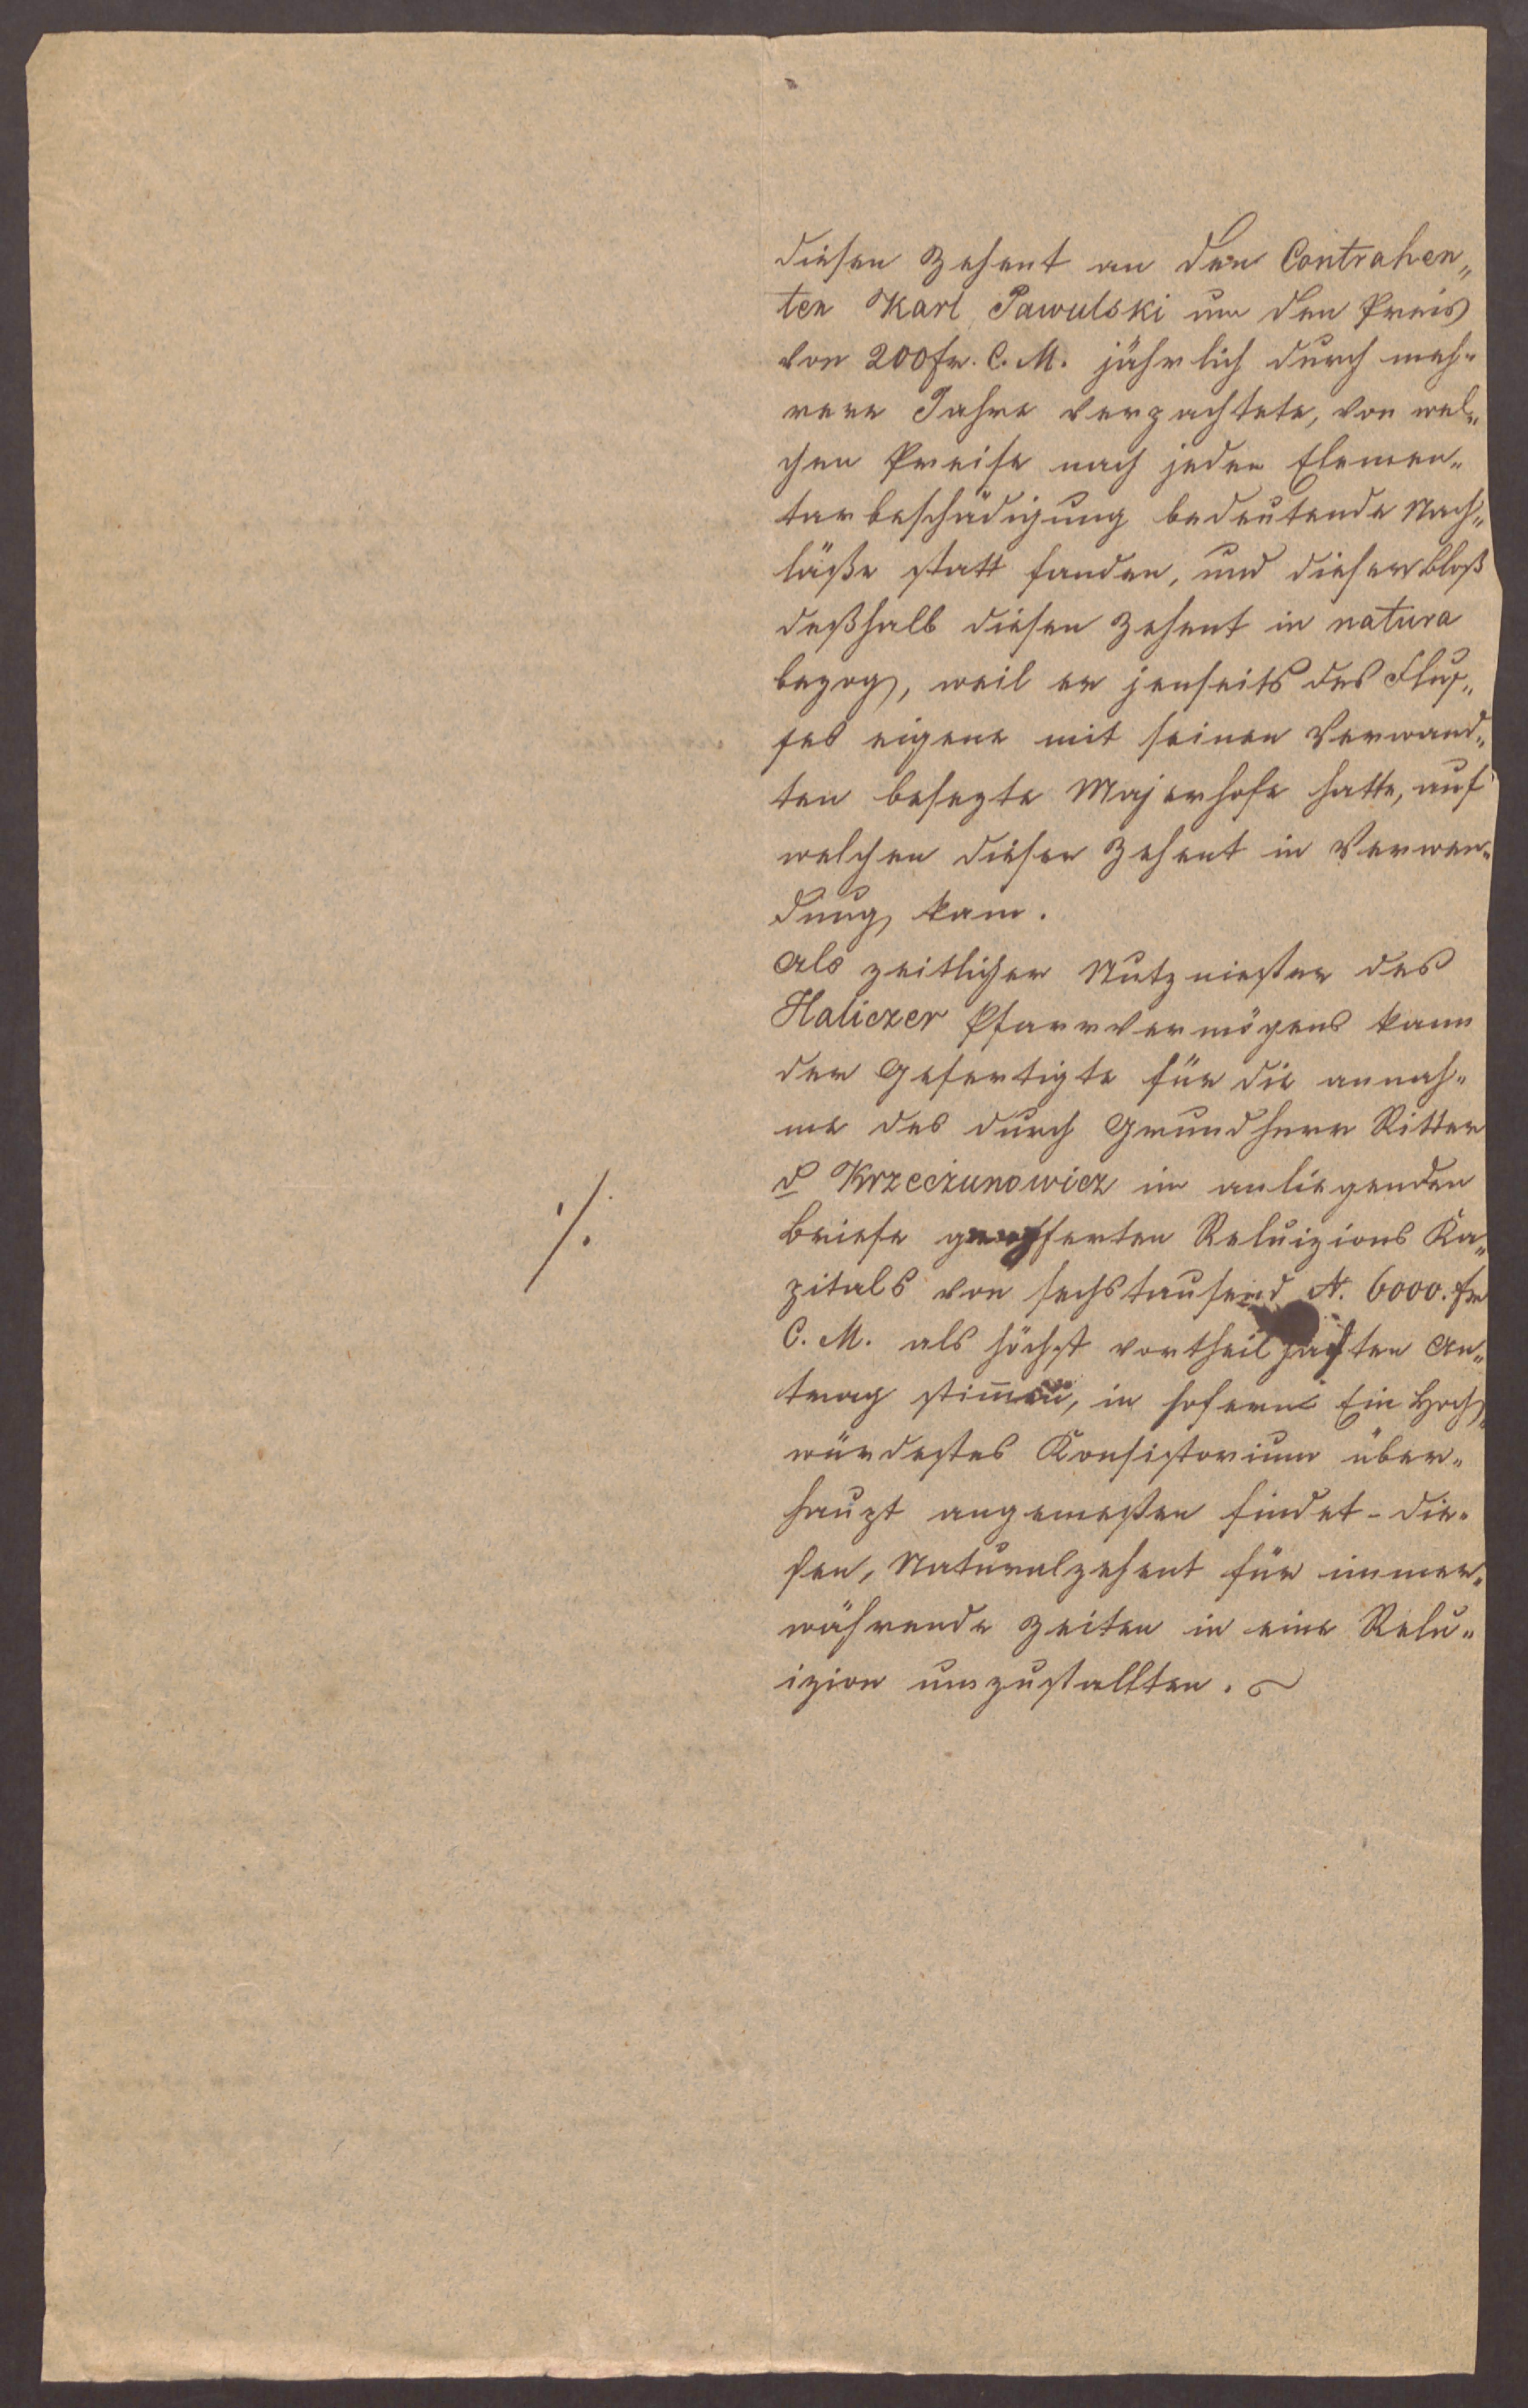 diesen Zehent an den Contrahen„
ten Karl Pawulski um den Preis
von 200 fr. C. M. jährlich durch meh„
rere Jahre verpachtete, von wel„
chen Preise nach jeder Elemen„
tarbeschädigung bedeutende Nach„
läße statt fanden, und dieser bloß
deßhalb diesen Zehent in natura
bezog, weil er jenseits des Fluß„
ses eigene mit seinen Verwand„
ten besezte Majerhofe hatte, auf
welchen dieser Zehent in Verwen„
dung kam.
Als zeitlicher Nutznießer des
Haliczer Pfarrvermögens kann
der Gefertigte für die Annah„
me des durch Grundherr Ritter
d Krzeczunowicz im anliegenden
./.
Briefe geofferten Reluizions Ka„
pitals von sechstausend N. 6000. fr
C. M. als höchst vortheilhaften An„
trag stimmen, in soferne Ein Hoch„
würdestes Konsistorium über„
haupt angemeßen findet - die„
sen, Naturalzehent für immer„
währende Zeiten in eine Relu„
izion umzustallten.